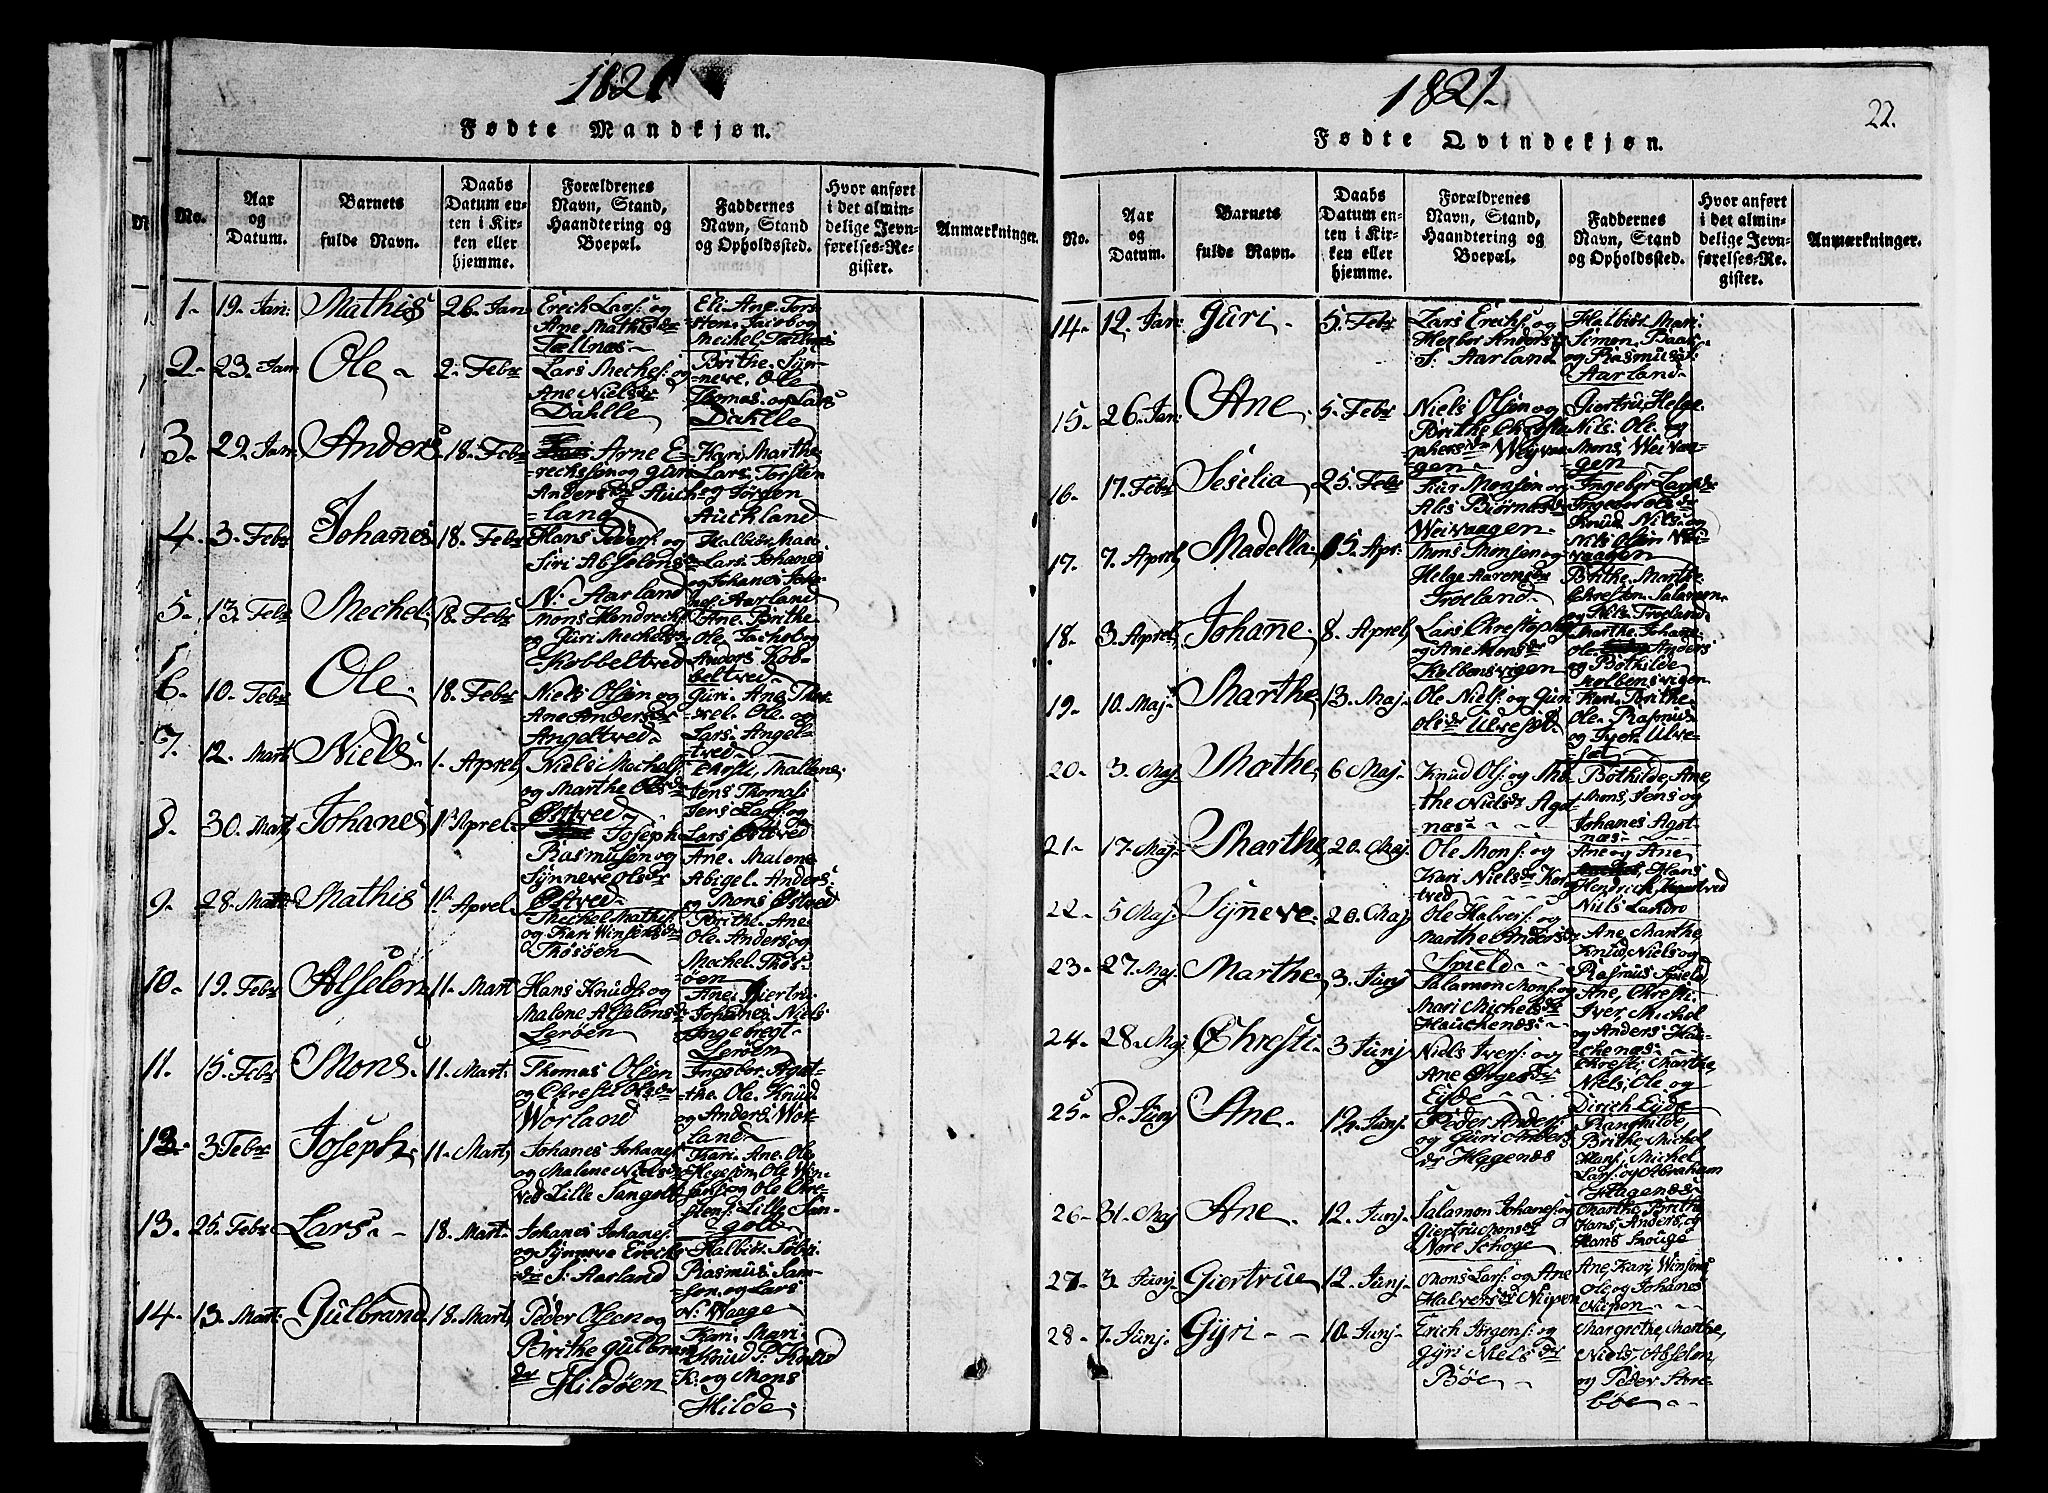 1821
Fødte Mandkjøn.
No.
Aar
og
Datum.
Barnets
fulde Navn.
Daabs
Datum en-
ten i Kir-
ken eller
hjemme.
Forældrenes
Navn, Stand,
Haandtering og
Boepæl.
Faddernes
Navn, Stand
og Opholdssted.
Hvor anført
i det almin-
delige Jevn-
førelses-Re-
gister.
Anmærkninger.
1. 19. Jan: Mathis 26. Jan
Erich Lars: og
Ane Mathisdr
Tællnæs
Eli. Ane. Tors-
sten. Jacob og
Mechel. Tællnæs
2. 23. Jan Ole 2. Febr
Lars Meches: og
Ane Nielsdr
Dahlle
Brithe. Syn-
neve. Ole
Thomas. og Lars
Dahlle
3. 29. Jan Anders 18. Febr
Arne E-
rechssøn og Guri
Andersdr Auch-
land
Kari, Marthe
Lars. Torsten
og Jørgen
Auckland
4. 3. Febr Johañes 18. Febr
Hans Peders: og
Siri Abselonsdr
N: Aarland
Halbiør. Mari
Lars. Johanes
og Johanes Joha-
nes: Aarland
5. 13. Febr Mechel 18. Febr
Mons Hendrech
og Guri Mechelsdr
Kobbeltved
Ane. Brithe
Ole. Jacheb og
Anders Kob-
beltved
6. 10. Febr Ole 18. Febr
Niels Olsen og
Ane Andersdr
Angeltved
Guri. Ane. The-
rel. Ole. og
Lars. Angel-
tved
7. 12. Mart Niels 1. Aprel
Niels Mechels
og Marthe Olsdr
Østtved
Chresti, Mallene,
Jens Thomas:
Jens Lars: og
Lars Østtved
8. 30. Mart Johanes 13 Aprel
Joseph
Rasmusøn og
Synneve Olsdr
Østved
Ane. Malene
Abigel. Anders
og Mons Østved
9. 28. Mart Mathis Aprel
Mechel Mathis:
og Kari Winsensdr
Thösöen
Brithe. Ane
Ole. Anders og
Mechel. Thös-
öen
10. 19. Febr Abselon 11. Mart
Hans Knuds: og
Malene Absalonsdr
Leröen
Ane. Giertru.
Johanes. Niels
Ingebregt
Leröen
11. 15. Febr Mons 11. Mart.
Thomas Olsen
og Chresti Olsdr
Worland
Ingebor. Agat-
the. Ole. Knud
og Anders Wor-
land
12. 3. Febr Joseph 11. Mart
Johanes Johanes
og Malene Nielsdr
ved Lille Sangolt
Kari. Ane. Ole
Ole Win-
sens: og Ole Chre-
stens: Lille San-
golt
13. 25. Febr Lars 18. Mart
Johanes Johanes
og Synneve Erechs
dr S: Aarland
Halbiör. Söbri
Rasmus. Sam-
son. og Lars
N: Waage
14. 13. Mart: Gulbrand 18. Mart
Peder Olsen og
Brithe Gulbrans
dr Hildöen
Kari. Mari.
Knud P: Knud
K: og Mons
Hilde
1821.
22.
Fødte Qvindekjøn.
No.
Aar
og
Datum.
Barnets
fulde Navn.
Daabs
Datum en-
ten i Kir-
ken eller
hjemme.
Forældrenes
Navn, Stand,
Haandtering og
Boepæl.
Faddernes
Navn, Stand
og Opholdssted.
Hvor anført
i det almin-
delige Jevn-
førelses-Re-
gister.
Anmærkninger.
14. 12. Jan: Guri 5. Febr
Lars Erechs: og
Herbor Andersd
S: Aarland
Halbiör Mari
Simon. Baar
og Rasmus S:
Aarland
15. 26. Jan: Ane 5. Febr
Niels Olsøn og
Brithe Christo
phersdr Weyvaa
gen
Giertru, Helge
Nils. Ole. og
Mons, Weivaa-
gen
16. 17. Febr Seselia 25. Febr
Siur Monsøn og
Alis Biörnsdr
Weivaagen
Ingebor Larsdr
Ingebor Olsdr
Knud. Nils. og
Nils Olsön Wei-
vaagen
17. 7. Aprel Madella 15. Apr:
Mons Monsøn og
Helge Aarensdr
Troeland
Brithe. Marthe.
Chresten. Salamon.
og Nils. Troeland
18. 3. Aprel Johañe 8. Aprel
Lars Chrestophs
og Ane Monsdr
Kolbensvigen
Marthe. Johane.
Ole. Anders
og Böthilde
Kolbensvigen
19. 10. Maj Marthe 13. Maj.
Ole Niels: og Guri
Olsdr Ulveset
Kari. Brithe.
Ole. Rasmus
og Iver. Ulve-
set
20. 3. Maj Mathe 6 Maj.
Knud Ols: og Ma
the Nielsdr Agot
næs
Böthilde, Ane,
Mons, Jens og
Johanes Agot-
næs
21. 17. Maj Marthe 20. Maj.
Ole Mons: og
Kari Nielsdr Kor
tved
Ane og Ane
Hans
Hendrich, Kortved
Niels Landro
22. 5 Maj. Syñeve 20. Maj
Ole Halvers: og
Marthe Andersdr
Spield
Ane, Marthe,
Knud, Niels og
Rasmus Spield
23. 27. Maj Marthe 3 Junj
Salamon Mons: og
Mari Michelsdr
Hauckenæs
Ane, Chresti.
Iver, Michel
og Anders Hau-
ckenæs
24. 28. Maj Chresti 3 Junj
Niels Ivers: og
Ane Örgesdr
Eyde
Chresti, Marthe
Niels, Ole og
Dirich Eyde
25. 8. Junj Ane 12. Junj.
Peder Anders:
og Guri Anders
dr Hagenæs
Ranghilde,
Brithe Michel
Hans, Michel
Lars: og Abraham
Hagenæs
26. 31. Maj Ane 12. Junj
Salamon Johanes: og
Giertru Monsdr
Nore Schoge
Marthe, Brithe
Hans, Anders, og
Hans Snouge
27. 3. Junj Giertrue 12. Junj
Mons Lars: og Ane
Halversdr Nupen
Ane Karj Winsens
Ole og Johanes
Nupen
28. 7. Junj Gyri 10. Junj
Erich Jörgens: og
Gyri Nielsdr
Böe
Margrethe, Marthe,
Niels, Abselon,
og Peder Store
böe